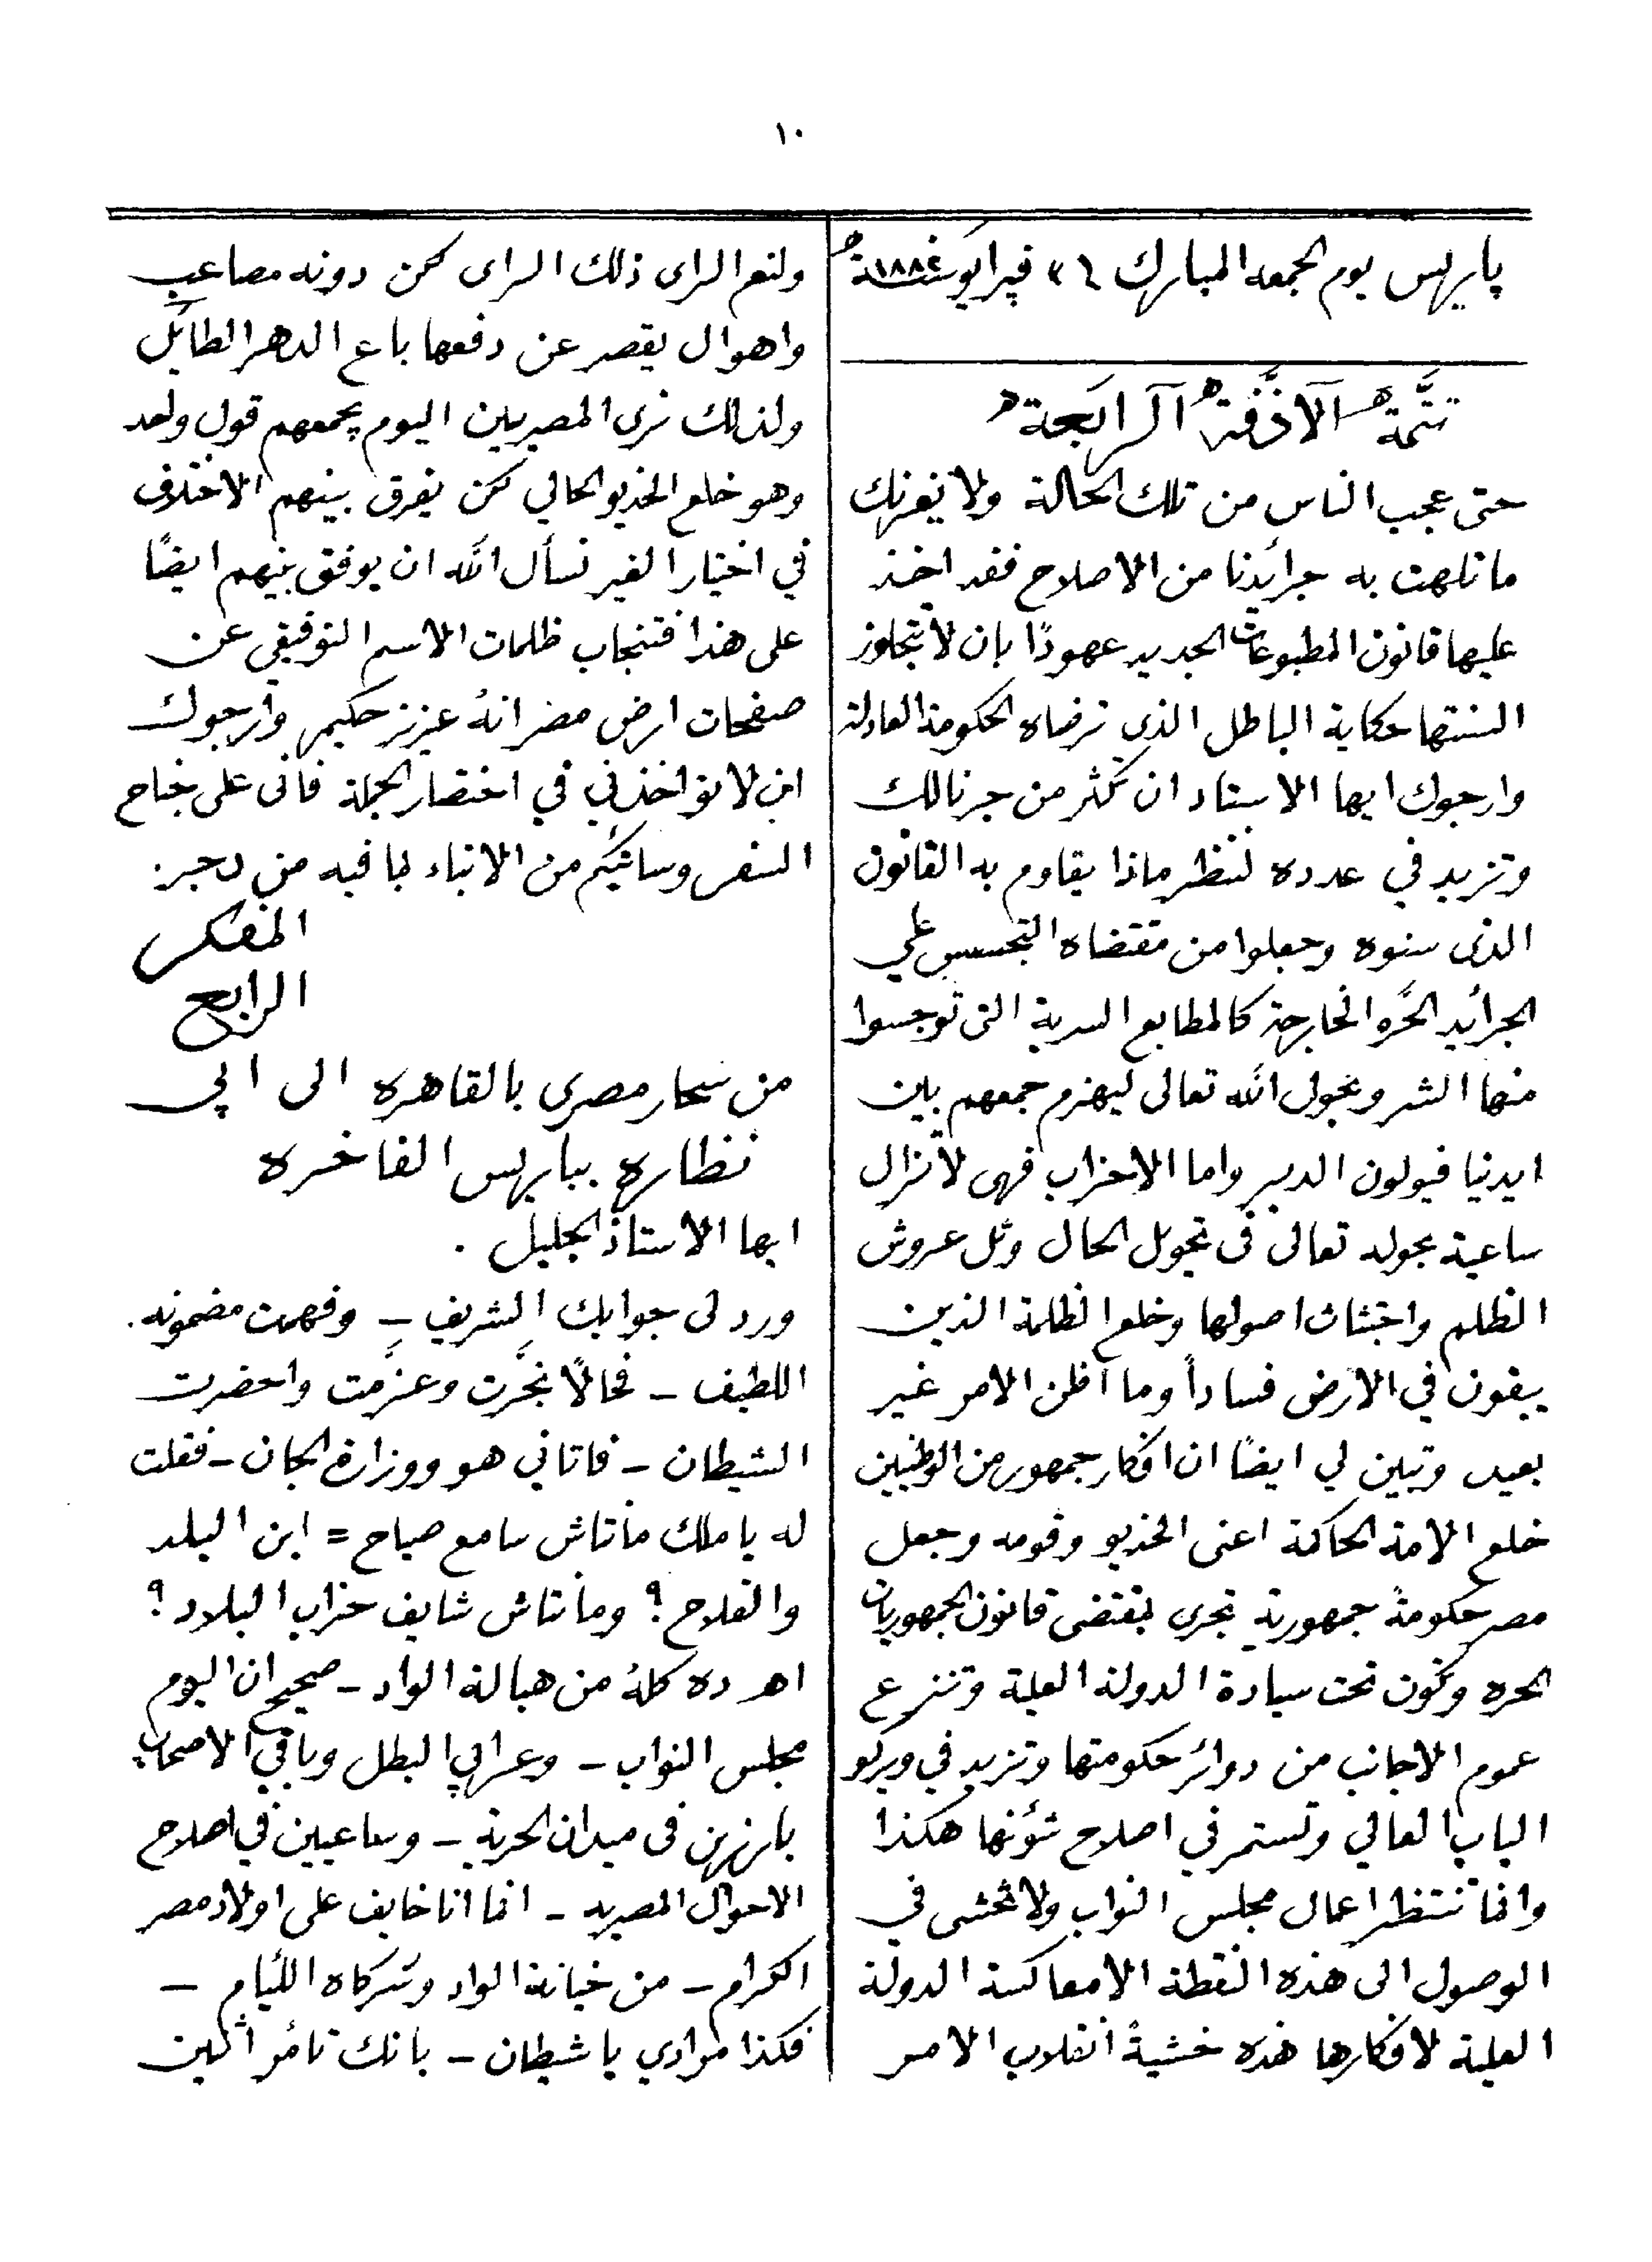 ١٠
پاريس يوم الجمعه المبارك ٢٤ فبرايو سنة ١٨٨٢
تتمَّة الآزفة الرابعة
حتى عجب الناس من تلك الحالة ولا يغرنك
ما تلهت به جرائدنا من الاصلاح فقد اخذ
عليها قانون المطبوعات الجديد عهودًا بان لا تتجاوز
السنتها حكاية الباطل الذى ترضاه الحكومة العادلة
وارجوك ايها الاستاد ان تكثر من جرنالك
وتزيد في عدده لننظر ماذا يقاوم به القانون
الذى سنوه وجعلوا من مقتضاه التجسس علي
الجرائد الحُره الخارجة كالمطابع السرية التى توجسوا
منها الشر وبحول الله تعالى ليهزم جمعهم بين
ايدنيا فيولون الدبر واما الاحزاب فهى لا تزال
ساعية بحوله تعالى فى تحويل الحال وثل عروش
الظلم واجتثاث اصولها وخلع الظلمة الذين
يبغون في الارض فساداً وما اظن الامر غير
بعيد وتبين لي ايضًا ان افكار جمهور من الوطنيين
خلع الامة الحاكمة اعنى الخديو وقومه وجعل
مصر حكومةً جمهورية تجرى بمقتضى قانون الجمهوريات
الحره وتكون تحت سيادة الدولة العلية وتنزع
عموم الاجانب من دوائر حكومتها وتزيد في ويركو
الباب العالي وتستمر في اصلاح شؤنها هكذا
وانما تنتظر اعمال مجلس النواب ولا تخشى في
الوصول الى هذه النقطة الا معاكسة الدولة
العلية لافكارها هذه خشيةً انقلاب الامر
ولنعم الراى ذلك الراى لكن دونه مصاعب
واهوال يقصر عن دفعها باع الدهر الطائل
ولذلك نرى المصريين اليوم يجمعهم قول واحد
وهو خلع الخديو الحالي لكن يفرق بينهم الاختلاف
في اختيار الغير نسأل الله ان يوفق بينهم ايضًا
على هذا فتنجاب ظلمات الاسم التوفيقي عن
صفحات ارض مصر انهُ عزيز حكيم وارجوك
ان لا تواخذني في اختصار الجملة فانى على جناح
السفر وساتيكم من الانباء بما فيه مزدجر
المفكر
الرابع
من سحار مصرى بالقاهره الى ابي
نظاره بباريس الفاخره
ايها الاستاذ الجليل .
ورد لى جوابك الشريف – وفهمت مضمونه
اللطيف – فحالًا بخَّرت وعزَّمت واحضرت
الشيطان – فاتاني هو ووزارة الجان – فقلت
له يا ملك مانتاش سامع صياح = ابن البلد
والفلاح ؟ ومانتاش شايف خراب البلاد ؟
اهو ده كلهُ من هبالة الواد – صحيح ان اليوم
مجلس النواب – وعرابي البطل وباقي الاصحاب
بارزين فى ميدان الحرية – وساعيين في اصلاح
الاحوال المصريه – انما انا خايف على اولاد مصر
الكرام – من خيانة الواد وشركاه اللئام –
فكذا مرادي يا شيطان – بانك تأمر اثنين